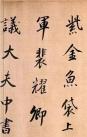 紫金魚袋上
軍裴耀卿
議大夫中書